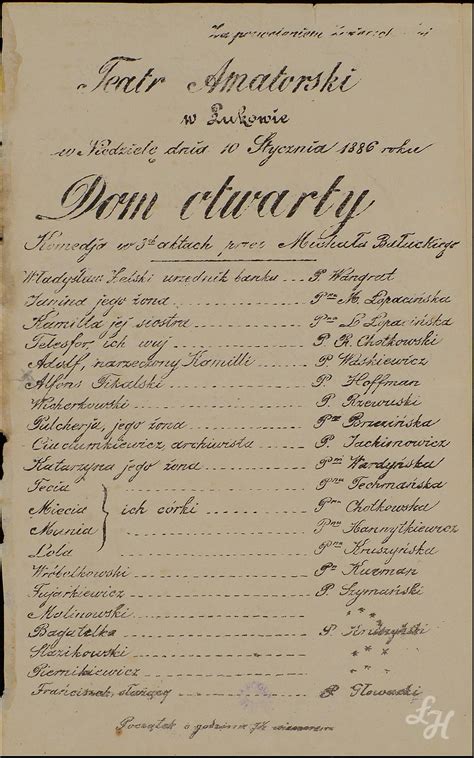 Za pozwoleniem
Teatr Amatorski
w Łukowie
w Niedzielę dnia 10 Stycznia 1886 roku
Dom otwarty
Komedja w 3ch aktach, przez Michała Bałuckiego
Władysław Żelski urzędnik banku P. Wangrat
Janina jego żona Pni M. Łopacińska
Kamilla jej siostra Pna L. Łopacińska
Telesfor, ich wuj P. K. Chotkowski
Adolf, narzeczony Kamilli P. Waśkiewicz
Alfons Fikalski P. Hoffman
Wicherkowski P. Rzewuski
Pulcherja, jego żona Pna Brzezińska
Ciuciumkiewicz, archiwista P. Jachimowicz
Katarzyna jego żona Pni Wardyńska
Tecia Pna Techmańska
Miecia ich córki Pna Chotkowska
Munia Pna Hannytkiewicz
Lola Pna Kruszyńska
Wróbelkowski P. Kuzman
Fujarkiewicz P. Szymański
Malinowski * * *
Bagatelka P. Kruszyński
Ślazikowski * * *
Piernikiewicz
Franciszek, służący P. Głowacki
Początek o godzinie 7½ wieczorem
ŁH